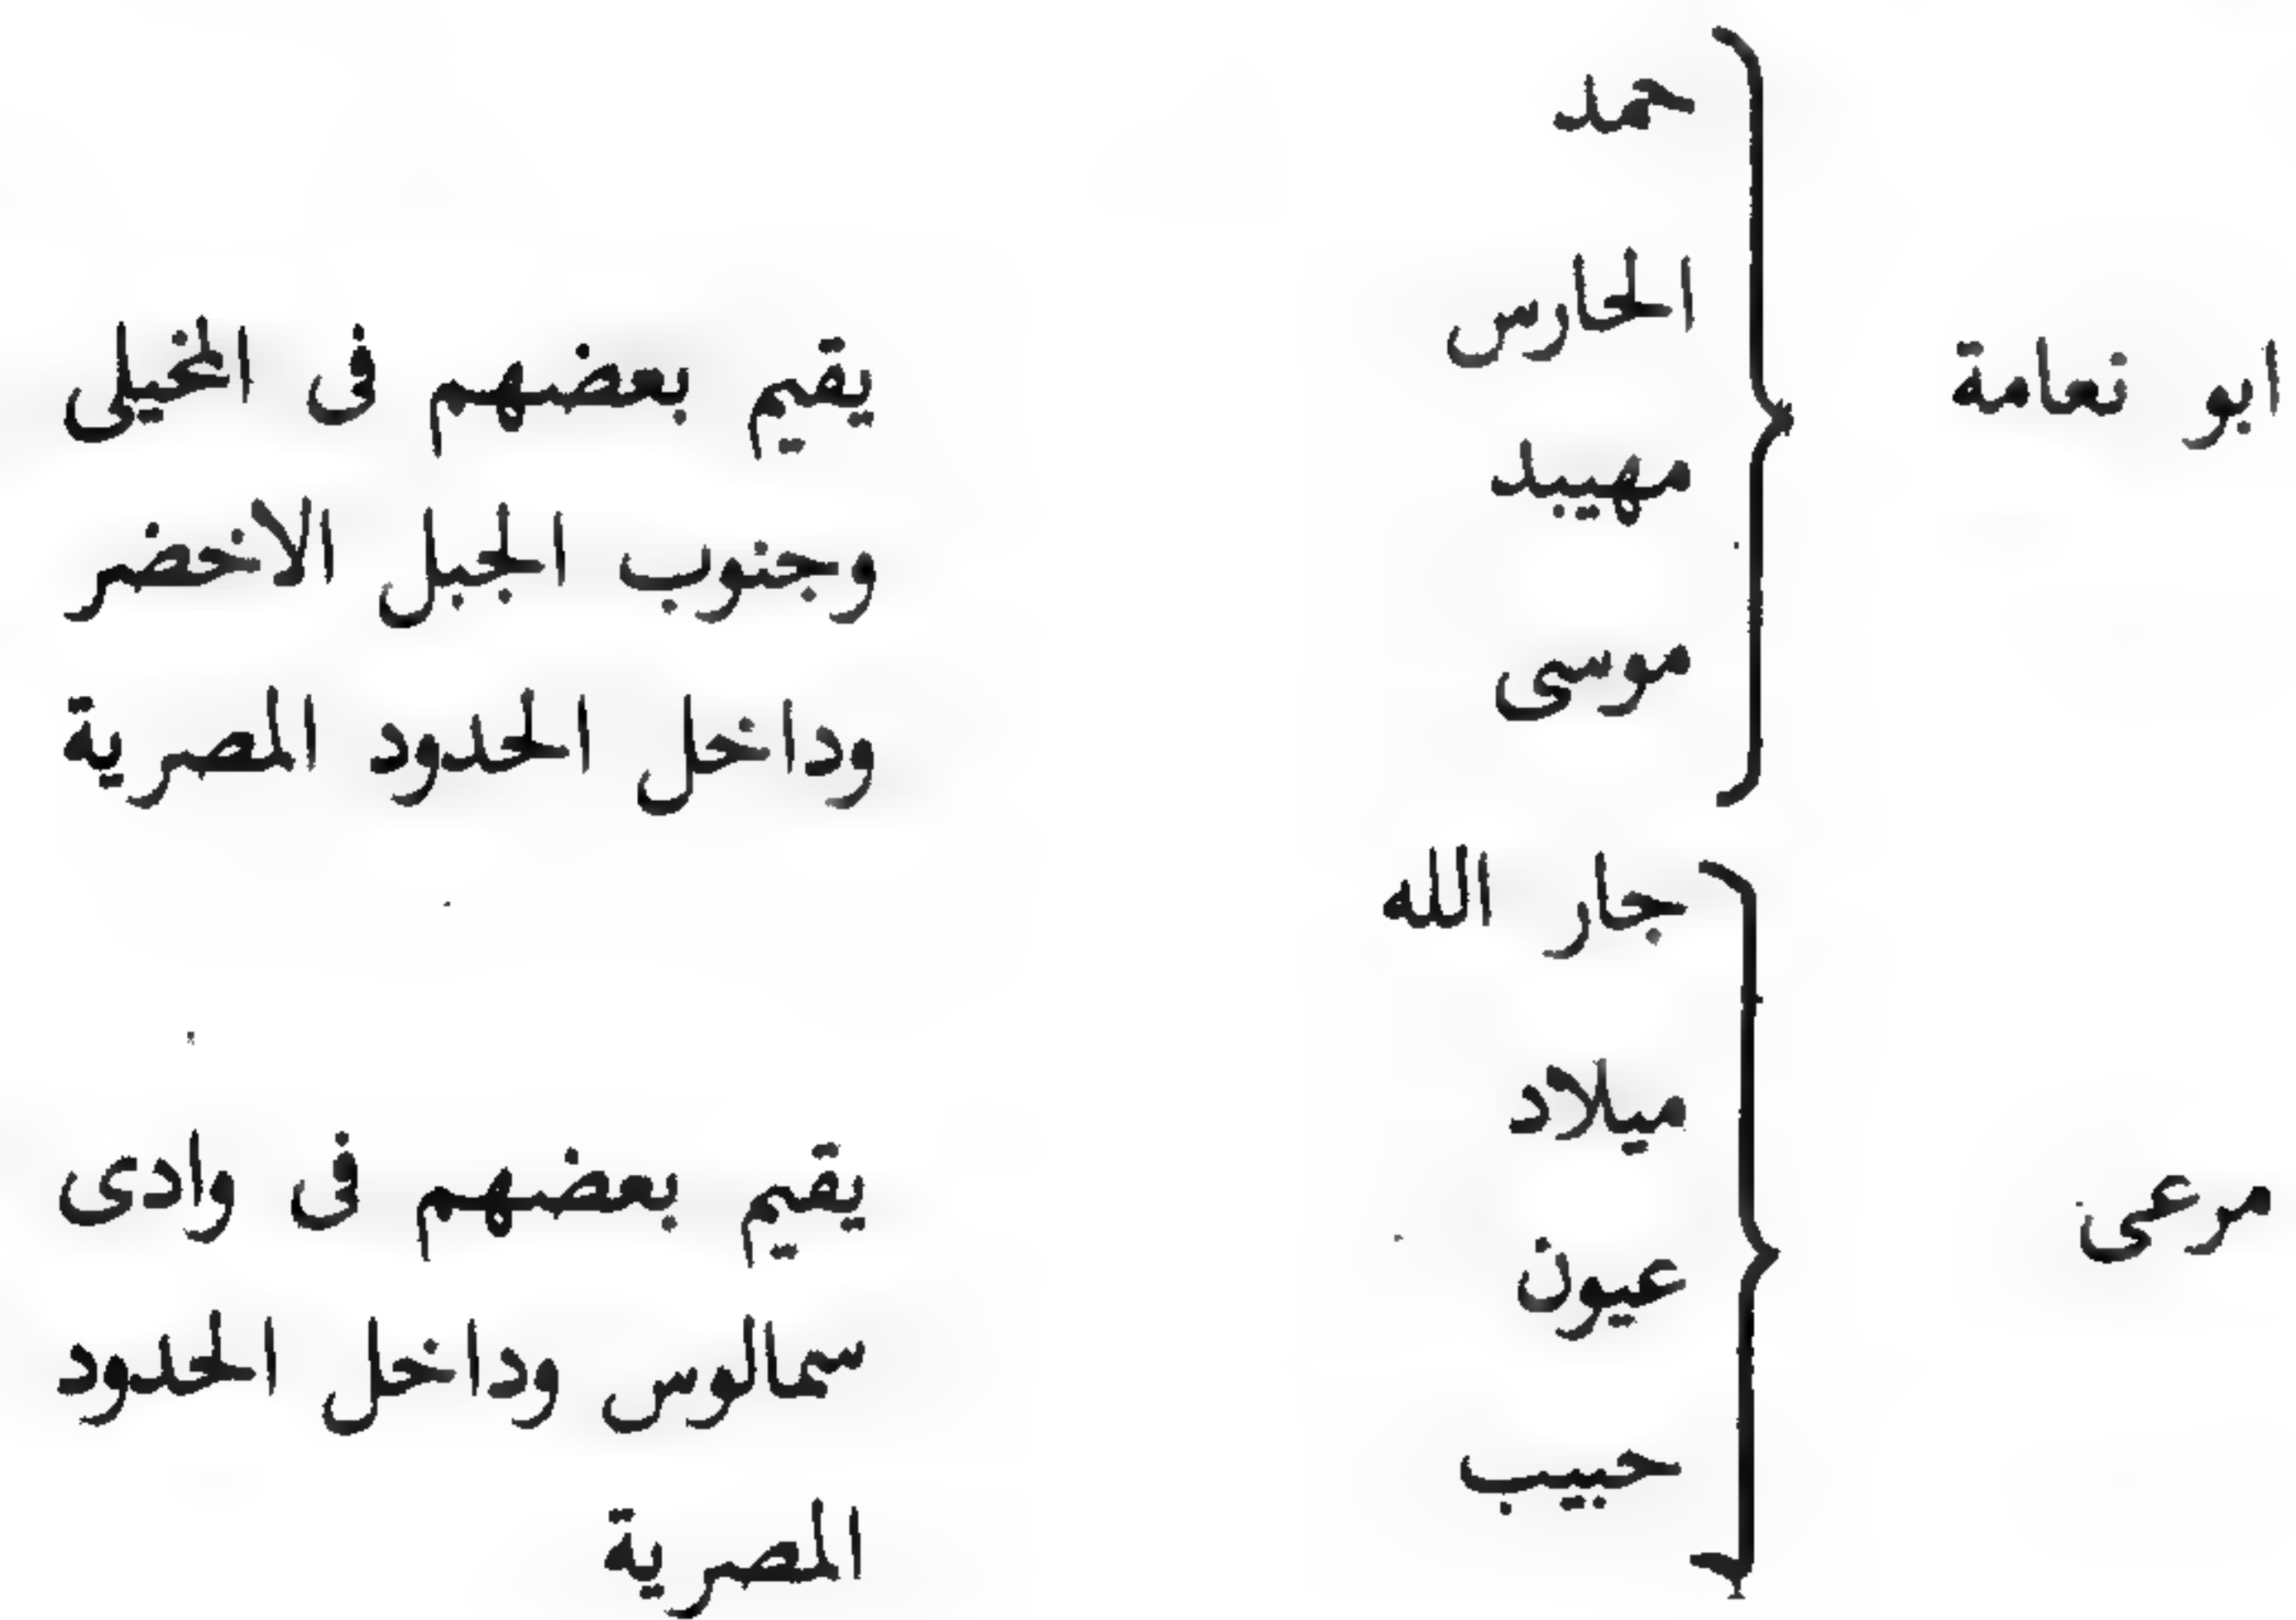 ابو نعامة
حمد
الحارس
مهيبد
موسى
يقيم بعضهم فى المخيلى
وجنوب الجبل الاخضر
وداخل الحدود المصرية
مرعى
جار الله
ميلاد
عيون
حبيب
يقيم بعضهم فى وادى
سمالوس وداخل الحدود
المصرية